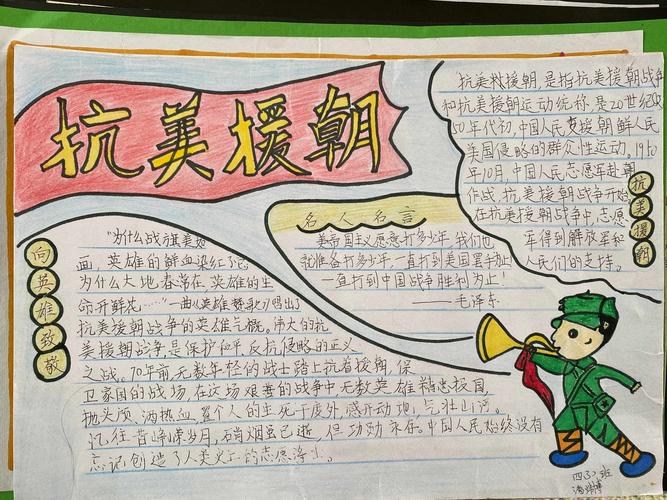 抗美援朝
抗美援朝,是指抗美援朝战争
和抗美援朝运动统称,是20世纪
50年代初,中国人民支援朝鲜人民
美国侵略的群众性运动。1950
年10月,中国人民志愿军赴朝
作战,抗美援朝战争开始
在抗美援朝战争中,志愿
军得到解放军和
人民们的支持。
抗美援朝
名人名言
美帝国主义愿意打多少年,我们也
就准备打多少年,一直打到美国罢手为止,
一直打到中国战争胜利为止!
——毛泽东
向英雄致敬
"为什么战旗美如
画,英雄的鲜血染红了它
为什么大地春常在,英雄的生
命开鲜花……"一曲《英雄赞歌》唱出了
抗美援朝战争的英雄气概。伟大的抗
美援朝战争,是保护和平,反抗侵略的正义
之战。70年前,无数年轻的战士踏上抗美援朝,保
卫家国的战场,在这场艰苦的战争中无数英雄精忠报国,
抛头颅、洒热血,置个人的生死于度外,感天动地,气壮山河。
记往昔峥嵘岁月,硝烟虽已逝,但功勋永存。中国人民始终没有
忘记创造了人类
四(3)班